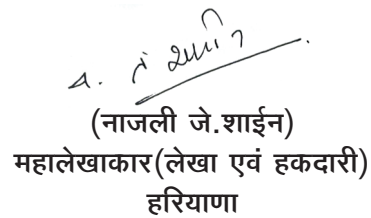 (नाजली जे.शाईन)
महालेखाकार(लेखा एवं हकदारी)
हरियाणा